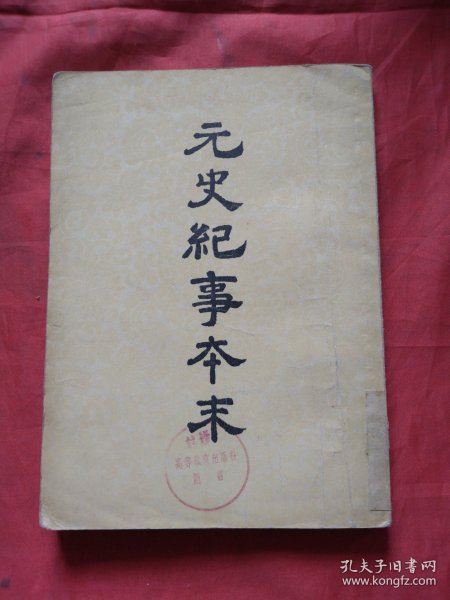 元史紀事本末
孔夫子旧书网
www.kongfz.com